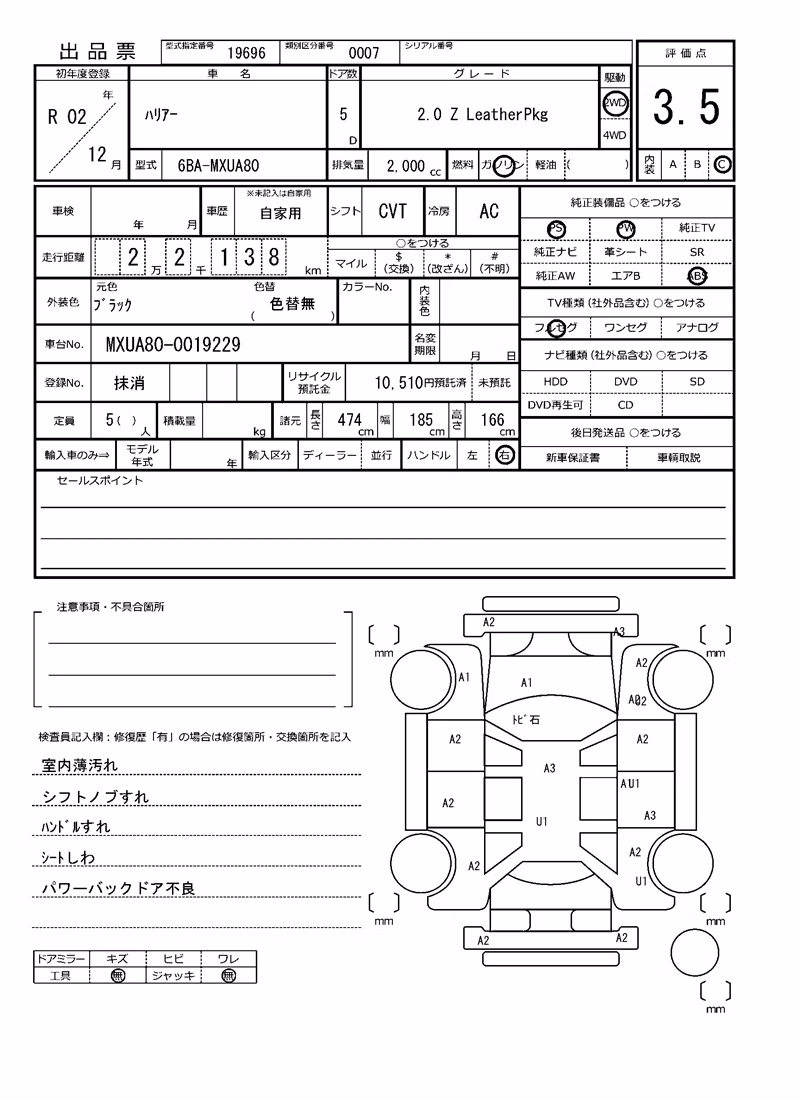 出品票 型式指定番号 19696 類別区分番号 0007 シリアル番号
評価点
3.5
内装 A B C
初年度登録 車名 ドア数 グレード 駆動
R 02 年 12 月
ハリアー 5 D 2.0 Z LeatherPkg 2WD 4WD
型式 6BA-MXUA80 排気量 2,000 cc 燃料 ガソリン 軽油 ( )
車検 年 月 車歴 ※未記入は自家用 自家用 シフト CVT 冷房 AC
走行距離 2 万 2 千 1 3 8 km
○をつける
マイル $(交換) *(改ざん) #(不明)
外装色 元色 ブラック 色替 ( 色替無 ) カラーNo. 内装色
車台No. MXUA80-0019229 名変期限 月 日
登録No. 抹消 リサイクル預託金 10,510円預託済 未預託
定員 5( ) 人 積載量 kg 諸元 長さ 474 cm 幅 185 cm 高さ 166 cm
輸入車のみ⇒ モデル年式 年 輸入区分 ディーラー 並行 ハンドル 左 右
純正装備品 ○をつける
PS PW 純正TV
純正ナビ 革シート SR
純正AW エアB ABS
TV種類(社外品含む)○をつける
フルセグ ワンセグ アナログ
ナビ種類(社外品含む)○をつける
HDD DVD SD
DVD再生可 CD
後日発送品 ○をつける
新車保証書 車輌取説
セールスポイント
注意事項・不具合箇所
検査員記入欄:修復歴「有」の場合は修復箇所・交換箇所を記入
室内薄汚れ
シフトノブすれ
ハンドルすれ
シートしわ
パワーバックドア不良
ドアミラー キズ ヒビ ワレ
工具 無 ジャッキ 無
A2 A3
mm mm
A1 A1 A2
トビ石
A2 A2
A3
AU1
A2 U1 A3
A2 A2
U1
mm mm
A2 A2
mm